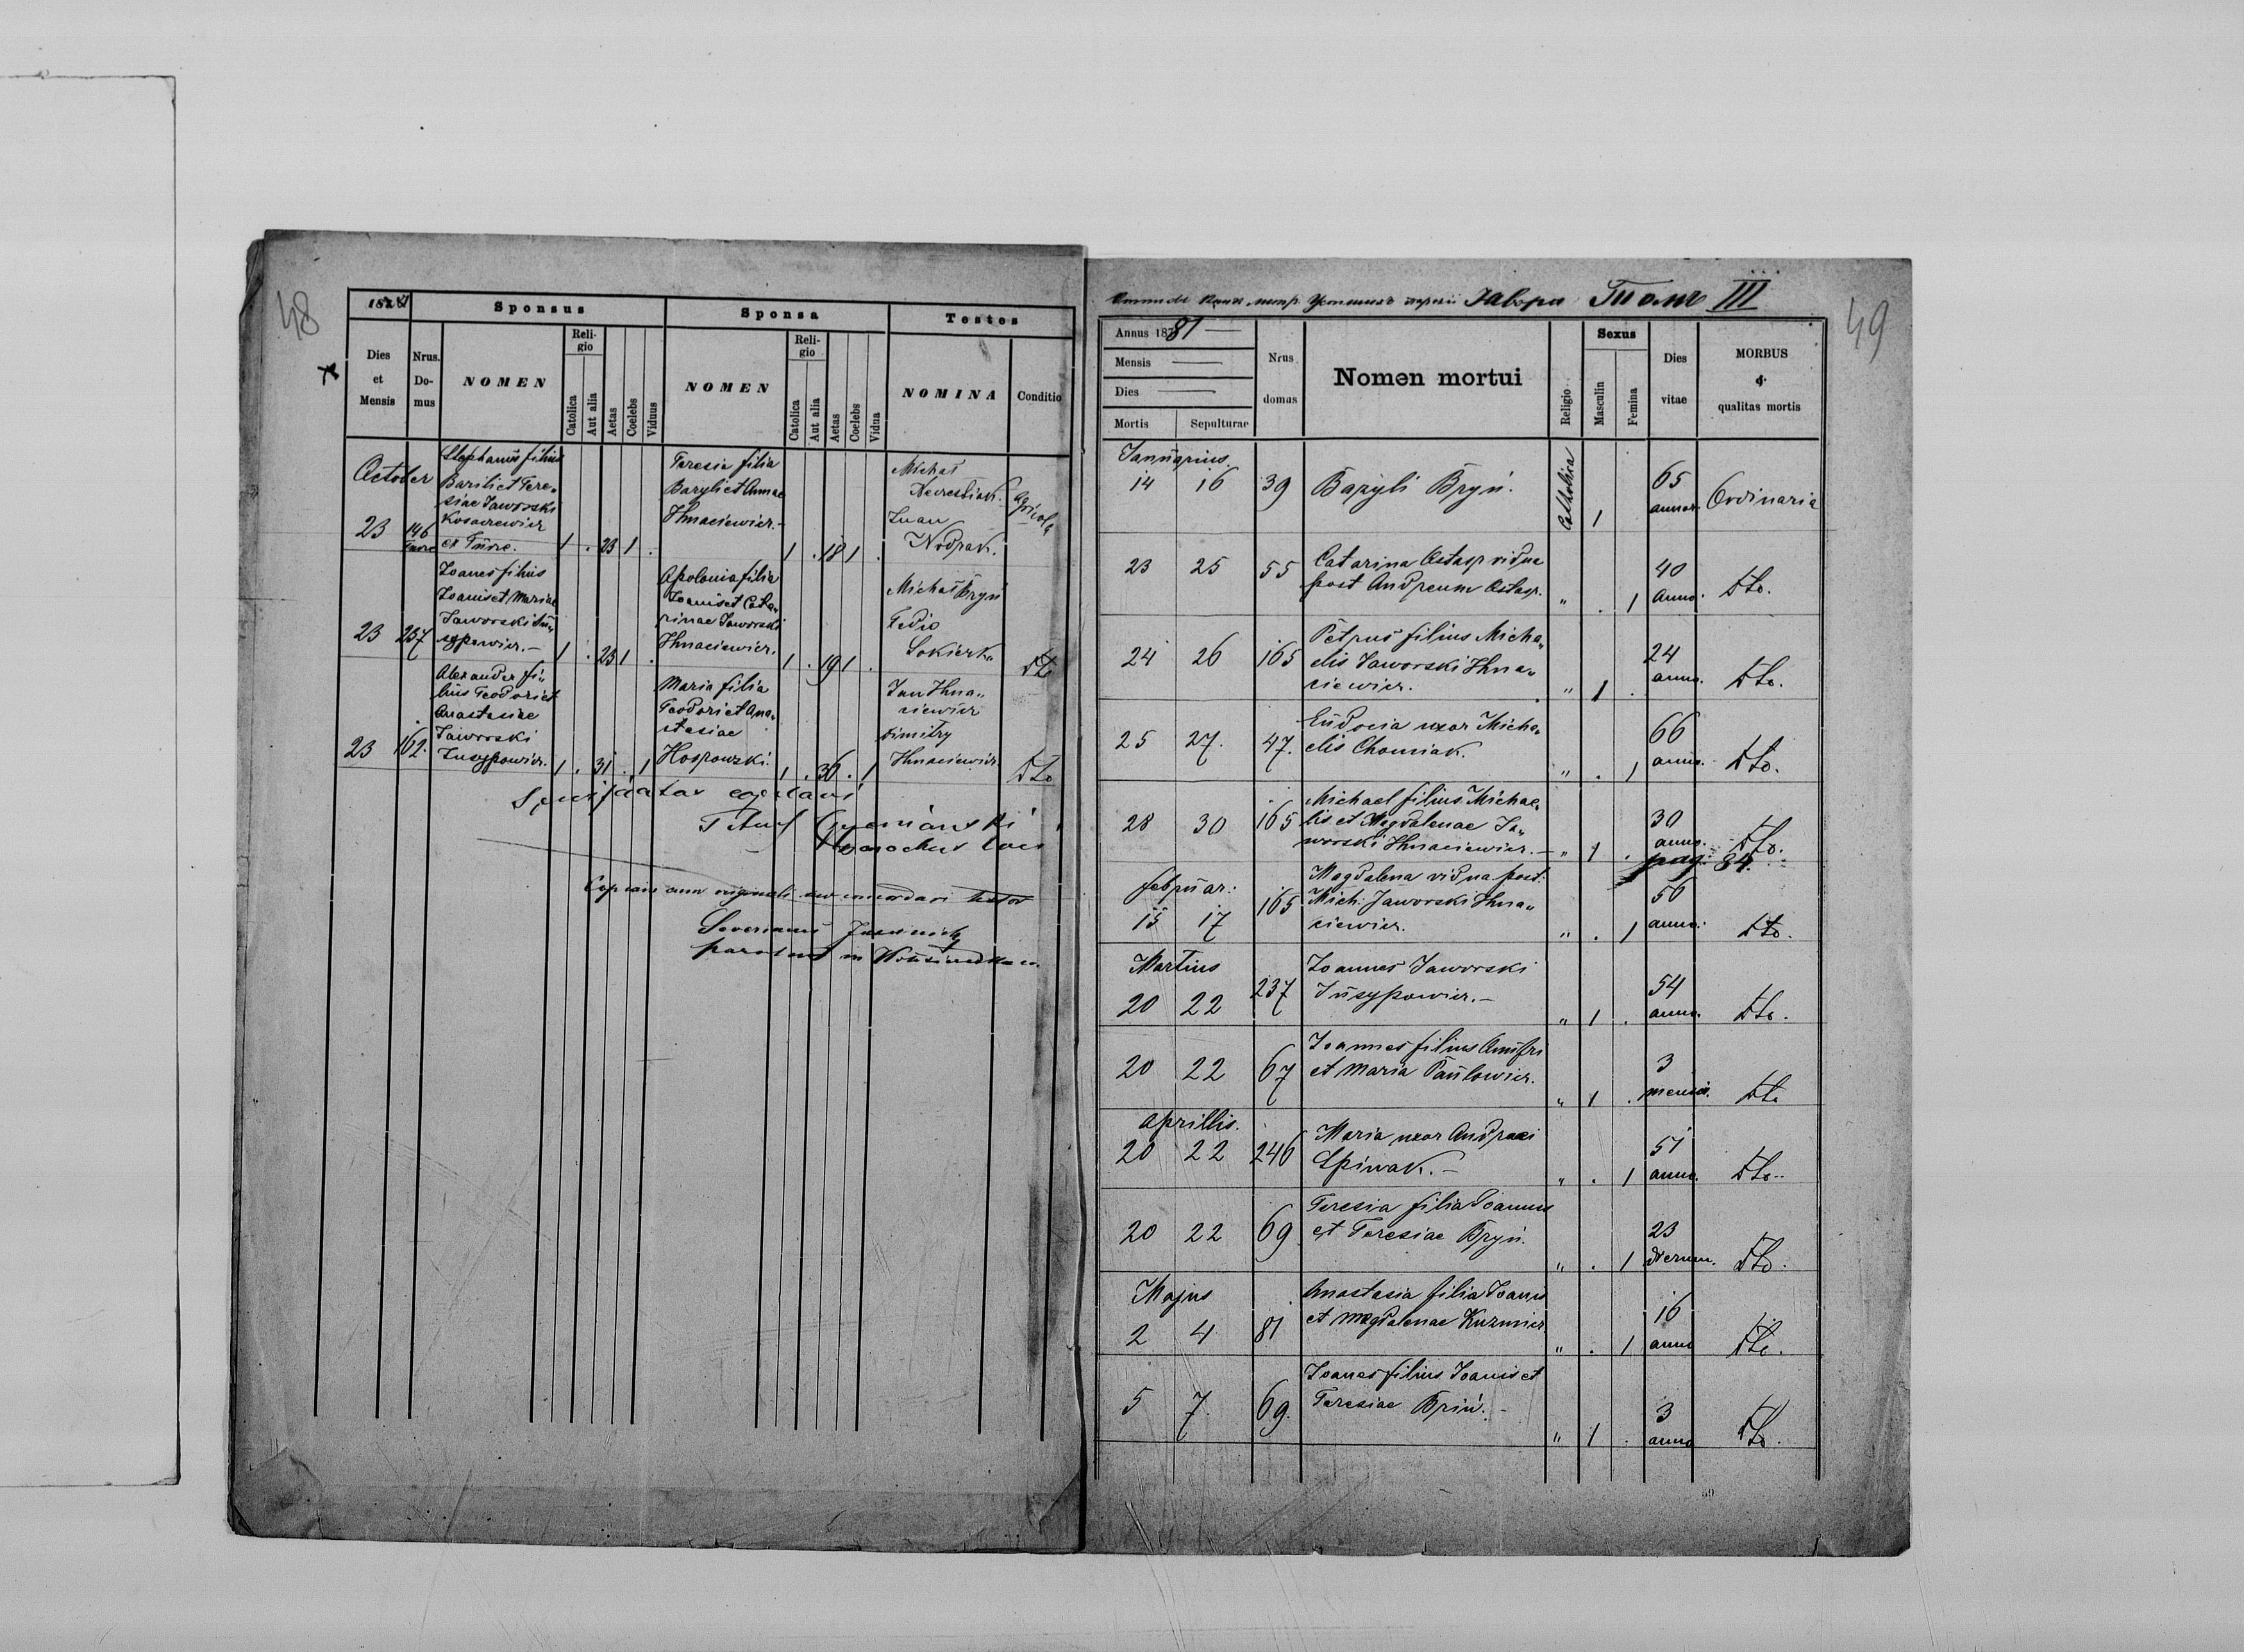 48
Sponsus
Sponsa
Testes
Dies et Mensis
Nrus. Domus
NOMEN
Religio
Catolica
Aut alia
Aetas
Coelebs
Viduus
NOMEN
Religio
Catolica
Aut alia
Aetas
Coelebs
Vidua
NOMINA
Conditio
October
23
146
Stephanus filius
Basili et Tere„
siae Jaworski
Kosaczewicz
ex Turze.
1 . 23 1 .
Teresia filia
Baryli et Annae
Ihnaciewicz.-
1 . 18 1 .
Michał
Iwan
Agricola
23
237
Joanes filius
Joanis et Mariae
Jaworski Iu„
sypowicz.-
1 . 23 1 .
Apolonia filia
Joanis et Cata„
rinae Jaworski
Ihnaciewicz.
1 . 19 1 .
Michał Bryń
Fedio
Sokierka
Dto
23
162.
Alexander fi„
lius Teodori et
Anastasiae
Jaworski
Iusypowicz.
1 . 31 . 1
Maria filia
Teodori et Ana„
stasiae
Hospowski.
1 . 36 . 1
Jan Ihna„
ciewicz
Dimitry
Ihnaciewicz
Dto
parochus loci
Severianus
parochus in
49
Явора Томъ III
Annus 1881
Mensis
Dies
Mortis
Sepulturae
Nrus domus
Nomen mortui
Religio
Sexus
Masculin
Femina
Dies vitae
MORBUS & qualitas mortis
Januarius.
14 16 39 Baryli Bryń. Catholica 1 65 annor. Ordinaria
23 25 55 Catarina Ostasp vidua
post Andreum Ostasp. „ . 1 40 Anno. Dto.
24 26 165 Petrus filius Micha„
elis Jaworski Ihna„
ciewicz. „ 1 . 24 anno. Dto.
25 27. 47. Eudocia uxor Micha„
elis Chomiak. „ . 1 66 anno. Dto.
28 30 165 Michael filius Michae„
lis et Magdalenae Ja„
worski Ihnaciewicz.- „ 1 . 30 anno. Dto.
pag. 84.
februar.:
15 17 165 Magdalena vidua post.
Mich: Jaworski Ihna„
ciewicz. „ . 1 56 anno. Dto.
Martius
20 22 237 Joannes Jaworski
Iusypowicz.- „ 1 . 54 anno. Dto.
20 22 67 Joannes filius Anufri
et Maria Paulowicz. „ 1 . 3 mensis. Dto
Aprillis.
20 22 246 Maria uxor Andreaei
Spiwak.- „ . 1 51 anno. Dto.
20 22 69 Teresia filia Joannis
et Teresiae Bryń. „ . 1 23 dierum. Dto.
Majus
2 4 81 Anastasia filia Joanis
et Magdalenae Kuzmicz. „ . 1 16 anno Dto.
5 7. 69. Joanes filius Joanis et
Teresiae Briń.- „ 1 . 3 anno Dto.